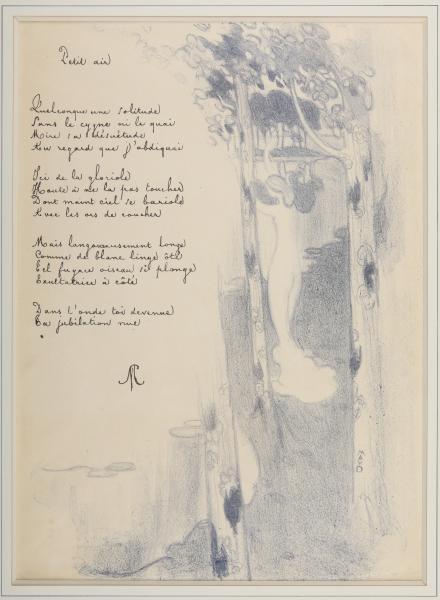 Petit air
Quelconque une solitude
Sans le cygne ni le quai
Mire sa désuétude
Au regard que j'abdiquai
Ici de la gloriole
Haute à ne la pas toucher
Dont maint ciel se bariole
Avec les ors de coucher
Mais langoureusement longe
Comme de blanc linge ôté
Tel fugace oiseau si plonge
Exultatrice à côté
Dans l'onde toi devenue
Ta jubilation nue